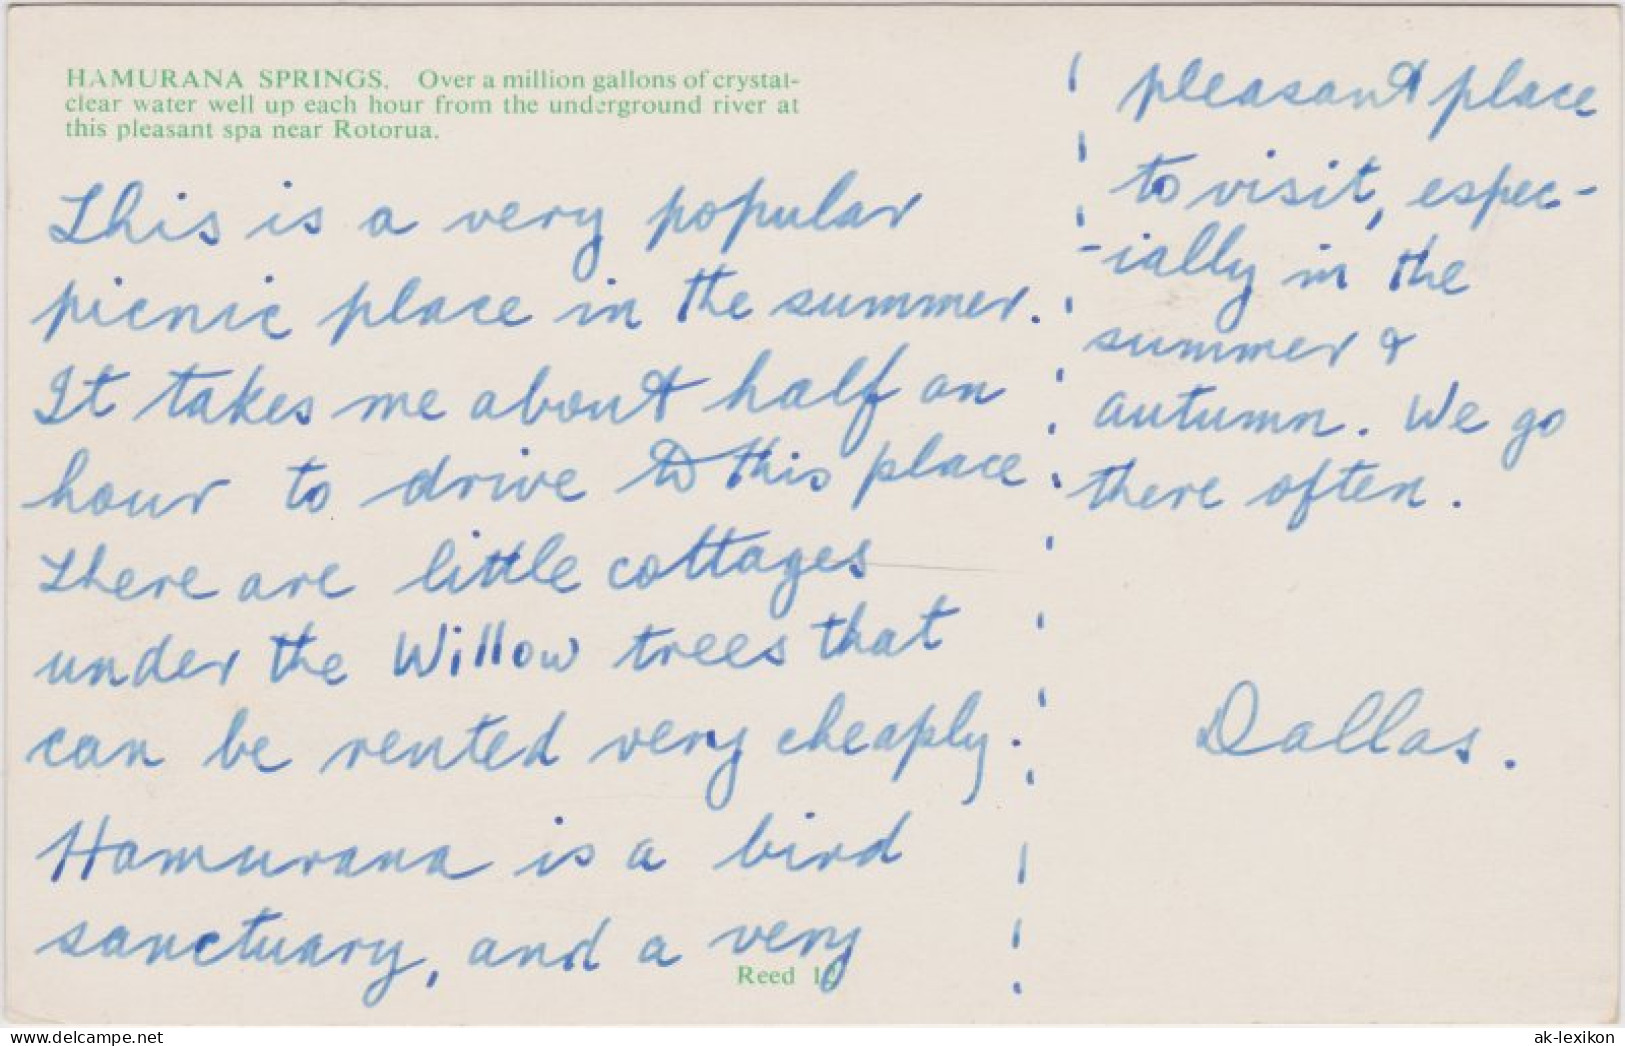 HAMURANA SPRINGS. Over a million gallons of crystal-
clear water well up each hour from the underground river at
this pleasant spa near Rotorua.
This is a very popular
picnic place in the summer.
It takes me about half an
hour to drive to this place.
There are little cottages
under the Willow trees that
can be rented very cheaply.
Hamurana is a bird
sanctuary, and a very
Reed
pleasant place
to visit, espec-
-ially in the
summer &
autumn. We go
there often.
Dallas.
www.ansichtskarten-lexikon.de
ak-lexikon